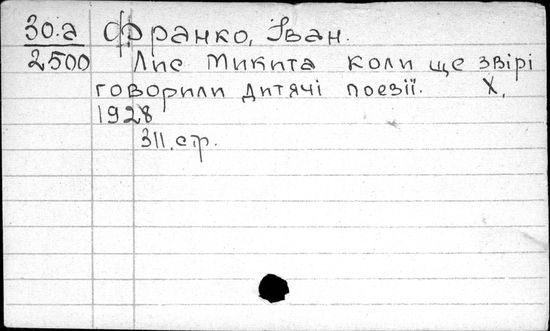 30.а Франко, Іван.
2500 Лис Микита коли ще звірі
говорили дитячі поезії. Х,
1928
311.стр.